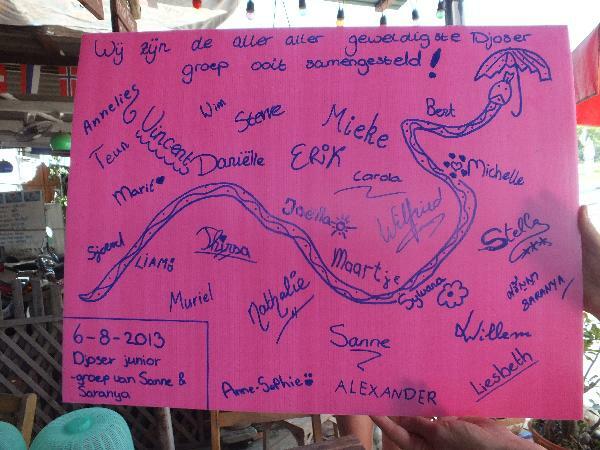 Wij zijn de aller aller geweldigste Djoser
groep ooit samengesteld!
Annelies
Wim
Sterre
Mieke
Bert
Teun
Vincent
Daniëlle
ERIK
Carola
Michelle
Marit
Joella
Wilfried
Stella
Sjoerd
LIAM
Thirza
Maartje
Sylvana
SARANYA
Muriel
Nathalie
Sanne
Willem
Liesbeth
6-8-2013
Djoser junior
-groep van Sanne &
Saranya
Anne-Sophie
ALEXANDER